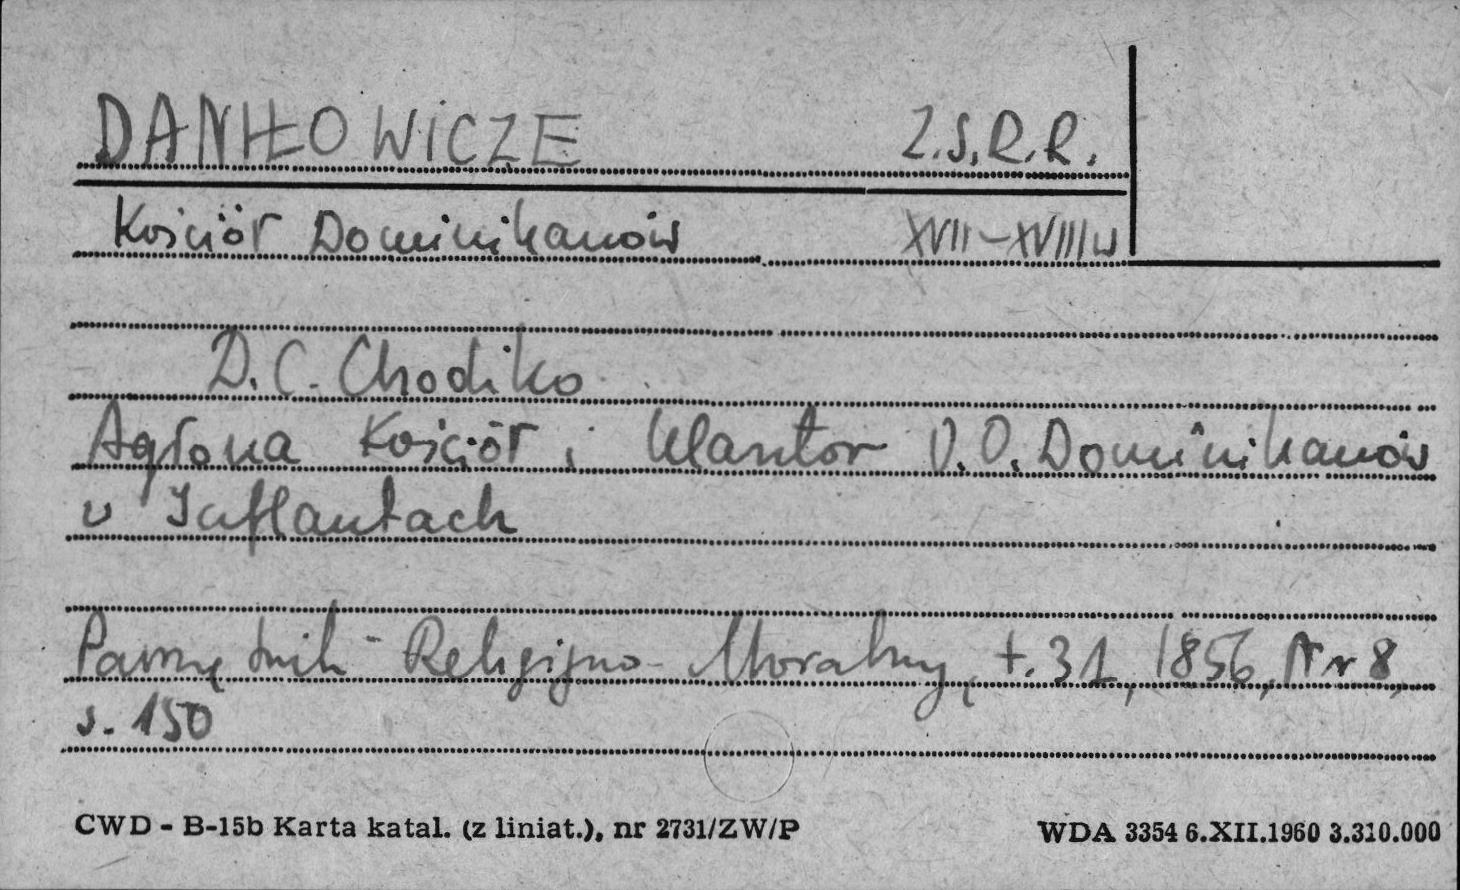 DANIŁOWICZE Z.S.R.R.
Kościół Dominikanów XVII–XVIII w
D. C. Chodźko
Agłona Kościół i klasztor O.O. Dominikanów
w Inflantach
Pamiętnik Religijno-Moralny, t. 31, 1856, Nr 8,
s. 150
CWD - B-15b Karta katal. (z liniat.), nr 2731/ZW/P WDA 3354 6.XII.1960 3.310.000